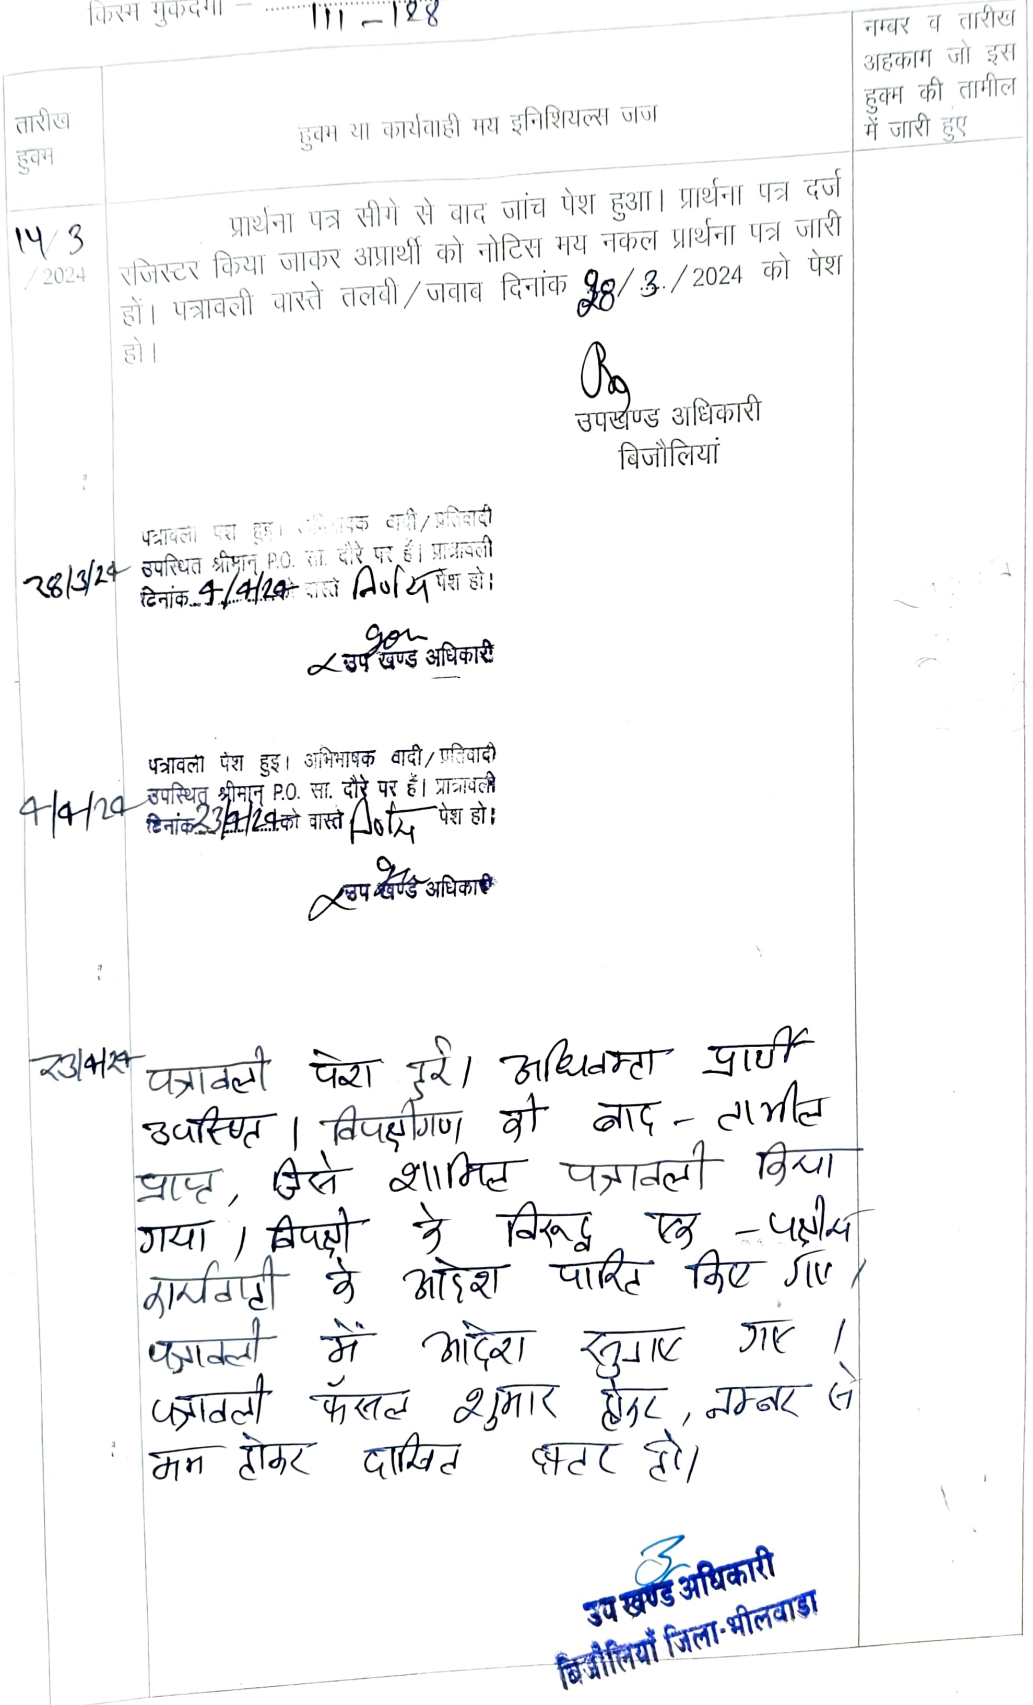 किस्म मुकदमा – III – 128
नम्बर व तारीख
अहकाम जो इस
हुक्म की तामील
में जारी हुए
तारीख
हुक्म
हुक्म या कार्यवाही मय इनिशियल्स जज
14/3
/2024
प्रार्थना पत्र सीगे से बाद जांच पेश हुआ। प्रार्थना पत्र दर्ज
रजिस्टर किया जाकर अप्रार्थी को नोटिस मय नकल प्रार्थना पत्र जारी
हों। पत्रावली वास्ते तलवी/जवाब दिनांक 28/3/2024 को पेश
हो।
उपखण्ड अधिकारी
बिजौलियां
पत्रावली पेश हुइ। अभिभाषक वादी/प्रतिवादी
28/3/24 उपस्थित श्रीमान् P.O. सा. दौरे पर हैं। प्रात्रावली
दिनांक 4/4/24 को वास्ते निर्णय पेश हो।
उप खण्ड अधिकारी
पत्रावली पेश हुइ। अभिभाषक वादी/प्रतिवादी
4/4/24 उपस्थित श्रीमान् P.O. सा. दौरे पर हैं। प्रात्रावली
दिनांक 23/4/24 को वास्ते निर्णय पेश हो।
उप खण्ड अधिकारी
23/4/24 पत्रावली पेश हुई। अधिवक्ता प्रार्थी
उपस्थित। विपक्षीगण की बाद – तामील
प्राप्त, जिसे शामिल पत्रावली किया
गया। विपक्षी के विरूद्ध एक – पक्षीय
कार्यवाही के आदेश पारित किए गए।
पत्रावली में आदेश सुनाए गए।
पत्रावली फैसल शुमार होकर, नम्बर से
कम होकर दाखिल दफ्तर हो।
उप खण्ड अधिकारी
बिजौलियाँ जिला-भीलवाडा